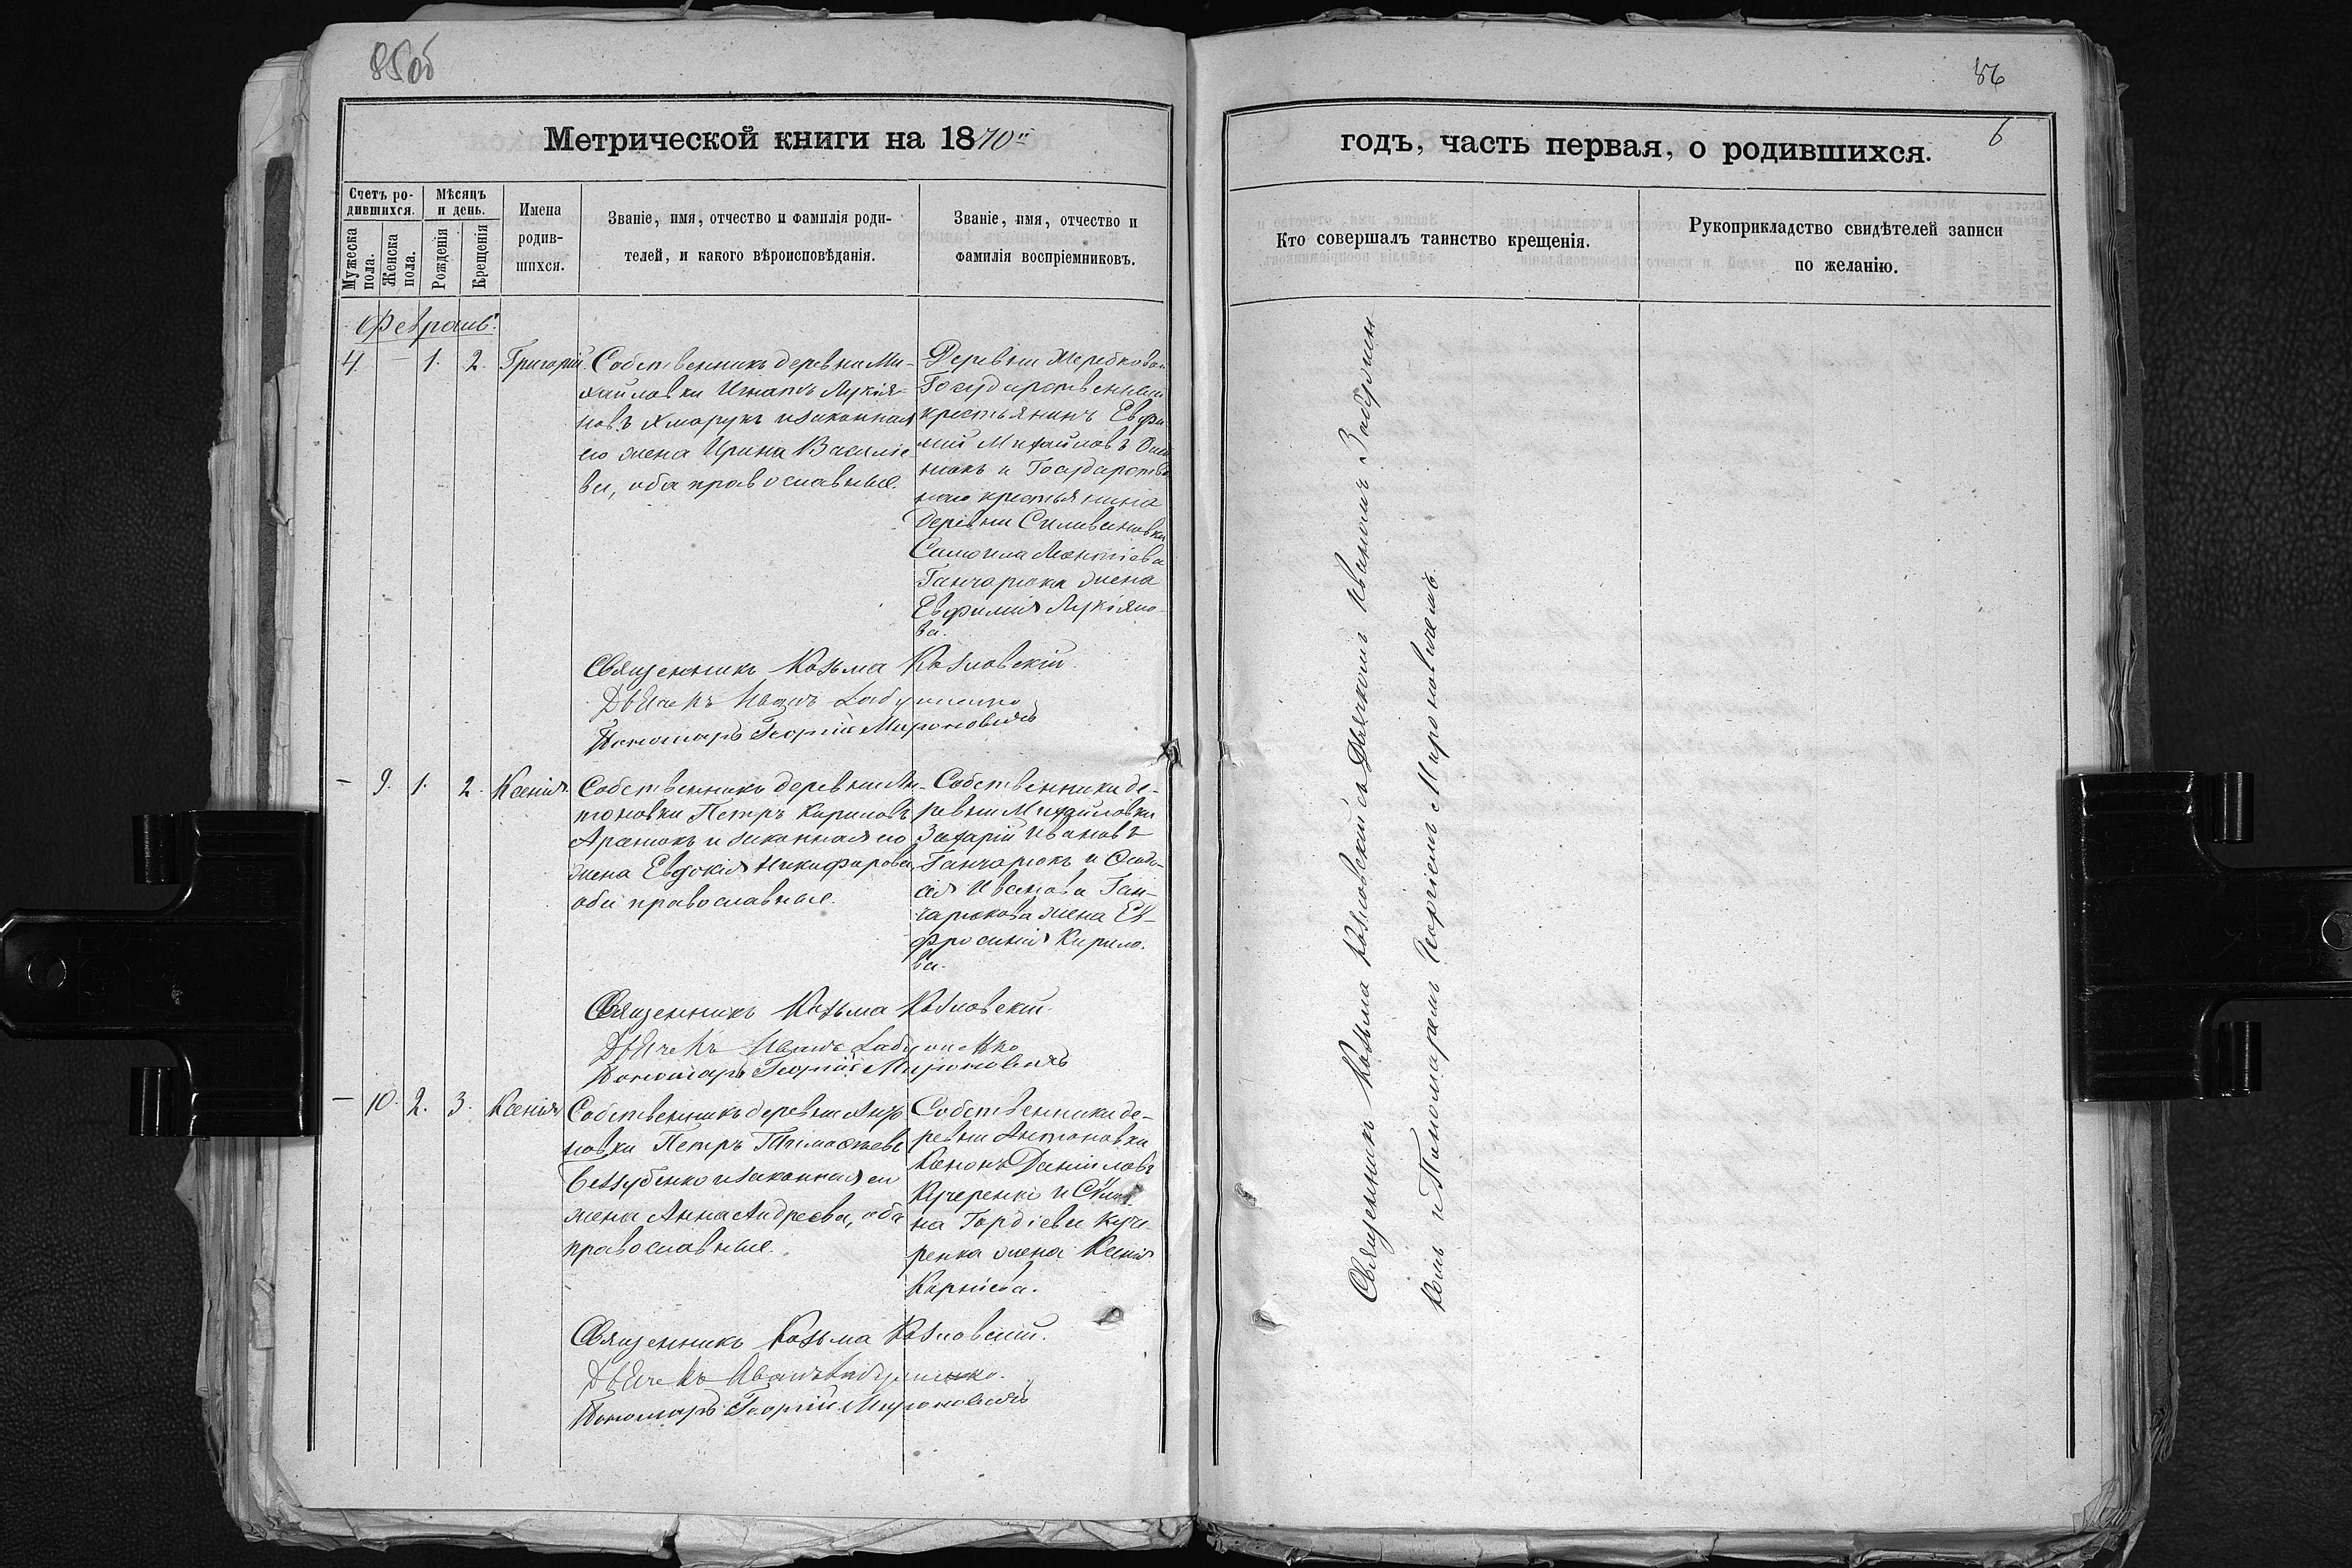 85об
Метрической книги на 1870й
Счетъ ро-
дившихся.
Мужеска
пола.
Женска
пола.
Мѣсяцъ
и день.
Рожденія
Крещенія
Имена
родив-
шихся.
Званіе, имя, отчество и фамилія роди-
телей, и какого вѣроисповѣданія.
Званіе, имя, отчество и
фамилія воспріемниковъ.
Февраль.
4. — 1. 2. Григорій.
Собственникъ деревни Ми-
хайловки Игнатъ Лукія-
новъ Хмарукъ и законная
его жена Ирина Василіе
ва, оба православные.
Деревни Жеребковой
Государственный
крестьянинъ Евфи
мій Михайловъ
и Государствен
наго крестьянина
деревни Селивановки
Самоила Леонтіева
Ганчарюка жена
Евфимія Лукіяно-
ва.
Священникъ Козьма Козловскій.
Дьячекъ Иванъ Забузшенко
Пономарь Георгій Мироновичъ
— 9. 1. 2. Ксенія.
Собственникъ деревни Ан-
тоновки Петръ Кириловъ
Аранюкъ и законная его
жена Евдокія Никифорова,
оба православные.
Собственники де-
ревни Михайловки
Захарій Ивановъ
Ганчарюкъ и Феодо-
сія Иванова Ган-
чарюкова жена Ев-
фросинія Кирило-
ва.
Священникъ Козьма Козловскій.
Дьячекъ Иванъ
Пономарь Георгій Мироновичъ
— 10. 2. 3. Ксенія
Собственникъ деревни Анто
новки Петръ Тимофѣевъ
Беззубенко и законная его
жена Анна Андреева, оба
православные.
Собственники де-
ревни Антоновки
Ксенонъ Даніиловъ
Кучеренко и
на Гордіева Куче-
ренка жена Ксенія
Корнѣева.
Священникъ Козьма Козловскій.
Дьячекъ Иванъ
Пономарь Георгій Мироновичъ
86
6
годъ, часть первая, о родившихся.
Кто совершалъ таинство крещенія.
Рукоприкладство свидѣтелей записи
по желанію.
Священникъ Козьма Козловскій съ Дьячкомъ Иваномъ
комъ и Пономаремъ Георгіемъ Мироновичемъ.